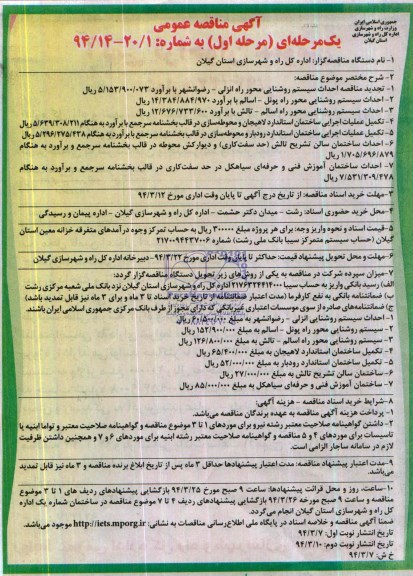 جمهوری اسلامی ایران
وزارت راه و شهرسازی
اداره کل راه و شهرسازی
استان گیلان
آگهی مناقصه عمومی
یک‌مرحله‌ای (مرحله اول) به شماره: ۹۴/۱۴-۲۰/۱
۱- نام دستگاه مناقصه‌گزار: اداره کل راه و شهرسازی استان گیلان
۲- شرح مختصر موضوع مناقصه:
۱- تجدید مناقصه احداث سیستم روشنایی محور راه انزلی - رضوانشهر با برآورد ۵/۱۵۳/۹۰۰/۰۷۳ ریال
۲- احداث سیستم روشنایی محور راه پونل - اسالم با برآورد ۱۴/۳۸۴/۸۸۴/۹۷۰ ریال
۳- احداث سیستم روشنایی محور راه اسالم - تالش با برآورد ۱۲/۶۷۶/۷۳۳/۶۰۰ ریال
۴- تکمیل عملیات اجرایی ساختمان استاندارد لاهیجان و محوطه‌سازی در قالب بخشنامه سرجمع با برآورد به هنگام ۵/۶۳۹/۳۰۸/۲۱۱ ریال
۵- تکمیل عملیات اجرایی ساختمان استاندارد رودبار و محوطه‌سازی در قالب بخشنامه سرجمع با برآورد به هنگام ۵/۲۹۶/۲۷۵/۴۳۸ ریال
۶- احداث ساختمان سالن تشریح تالش (حد سفت‌کاری) و دیوارکش محوطه در قالب بخشنامه سرجمع و برآورد به هنگام
۱/۷۰۵/۶۹۶/۸۷۹ ریال
۷- احداث ساختمان آموزش فنی و حرفه‌ای سیاهکل در حد سفت‌کاری در قالب بخشنامه سرجمع و برآورد به هنگام
۷/۵۳۱/۳۰۹/۴۷۸ ریال
۳-مهلت خرید اسناد مناقصه: از تاریخ درج آگهی تا پایان وقت اداری مورخ ۹۴/۳/۱۲
۴-محل خرید حضوری اسناد: رشت - میدان دکتر حشمت - اداره کل راه و شهرسازی گیلان - اداره پیمان و رسیدگی
۵-قیمت اسناد و نحوه واریز وجه: برای هر پروژه مبلغ ۳۰۰۰۰۰ ریال به حساب تمرکز وجوه درآمدهای متفرقه خزانه معین استان
گیلان (حساب سیستم متمرکز سیبا بانک ملی رشت) شماره ۲۱۷۰۰۹۴۴۳۷۰۰۶
۶-مهلت و محل تحویل پیشنهاد قیمت: حداکثر تا پایان وقت اداری مورخ ۹۴/۳/۲۲ - دبیرخانه اداره کل راه و شهرسازی گیلان
۷-میزان سپرده شرکت در مناقصه به یکی از روش‌های زیر تحویل دستگاه مناقصه‌گزار گردد:
الف) رسید بانکی واریز به حساب سیبا ۲۱۷۶۳۲۴۴۱۴۰۰۰ اداره کل راه و شهرسازی استان گیلان نزد بانک ملی شعبه مرکزی رشت
ب) ضمانتنامه بانکی به نفع کارفرما (مدت اعتبار ضمانتنامه از تاریخ خرید اسناد تا ۳ ماه و برای ۳ ماه نیز قابل تمدید باشد)
ج) ضمانتنامه‌های صادره از سوی موسسات اعتباری غیربانکی که دارای مجوز از طرف بانک مرکزی جمهوری اسلامی ایران باشند.
۱- احداث سیستم روشنایی انزلی - رضوانشهر به مبلغ ۶۰/۵۰۰/۰۰۰ ریال
۲- سیستم روشنایی محور راه پونل - اسالم به مبلغ ۱۵۲/۹۰۰/۰۰۰ ریال
۳- سیستم روشنایی محور راه اسالم - تالش به مبلغ ۱۲۶/۸۰۰/۰۰۰ ریال
۴- تکمیل ساختمان استاندارد لاهیجان به مبلغ ۶۵/۴۰۰/۰۰۰ ریال
۵- تکمیل ساختمان استاندارد رودبار به مبلغ ۵۲/۰۰۰/۰۰۰ ریال
۶- ساختمان سالن تشریح تالش به مبلغ ۲۷/۰۰۰/۰۰۰ ریال
۷- ساختمان آموزش فنی و حرفه‌ای سیاهکل به مبلغ ۸۵/۰۰۰/۰۰۰ ریال
۸-شرایط خرید اسناد مناقصه - هزینه آگهی:
۱- پرداخت هزینه آگهی مناقصه به عهده برندگان مناقصه می‌باشد.
۲- داشتن گواهینامه صلاحیت معتبر رشته نیرو برای موردهای ۱ تا ۳ موضوع مناقصه و گواهینامه صلاحیت معتبر و توام ابنیه یا
تاسیسات برای موردهای ۴ و ۵ مناقصه و گواهینامه صلاحیت معتبر رشته ابنیه برای موردهای ۶ و ۷ و همچنین داشتن ظرفیت
لازم در سامانه ساجار الزامی است.
۹-مدت اعتبار پیشنهاد مناقصه: مدت اعتبار پیشنهادها حداقل ۳ ماه پس از تاریخ ابلاغ برنده مناقصه و ۳ ماه نیز قابل تمدید
می‌باشد.
۱۰-ساعت، روز و محل قرائت پیشنهادها: ساعت ۹ صبح مورخ ۹۴/۳/۲۵ بازگشایی پیشنهادهای ردیف های ۱ تا ۳ موضوع
مناقصه و ساعت ۹ صبح مورخه ۹۴/۳/۲۶ بازگشایی پیشنهادهای ردیف ۴ تا ۷ موضوع مناقصه در ساختمان شماره یک اداره
کل راه و شهرسازی استان گیلان انجام می‌گردد.
ضمنا آگهی مناقصه و خلاصه اسناد در پایگاه ملی اطلاع‌رسانی مناقصات به نشانی: http://iets.mporg.ir موجود می‌باشد.
تاریخ انتشار نوبت اول: ۹۴/۳/۷
تاریخ انتشار نوبت دوم: ۹۴/۳/۱۰
خ ش: ۹۴/۳/۷